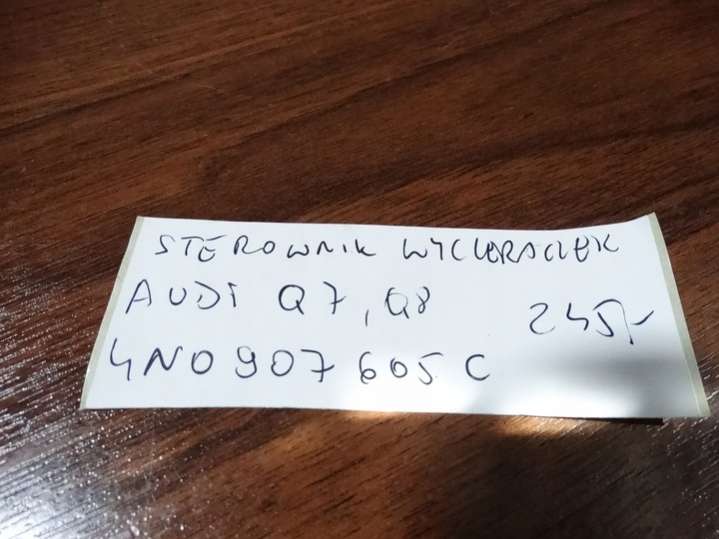 STEROWNIK WYCIERACZEK
AUDI Q7, Q8
245,-
4N0 907 605 C